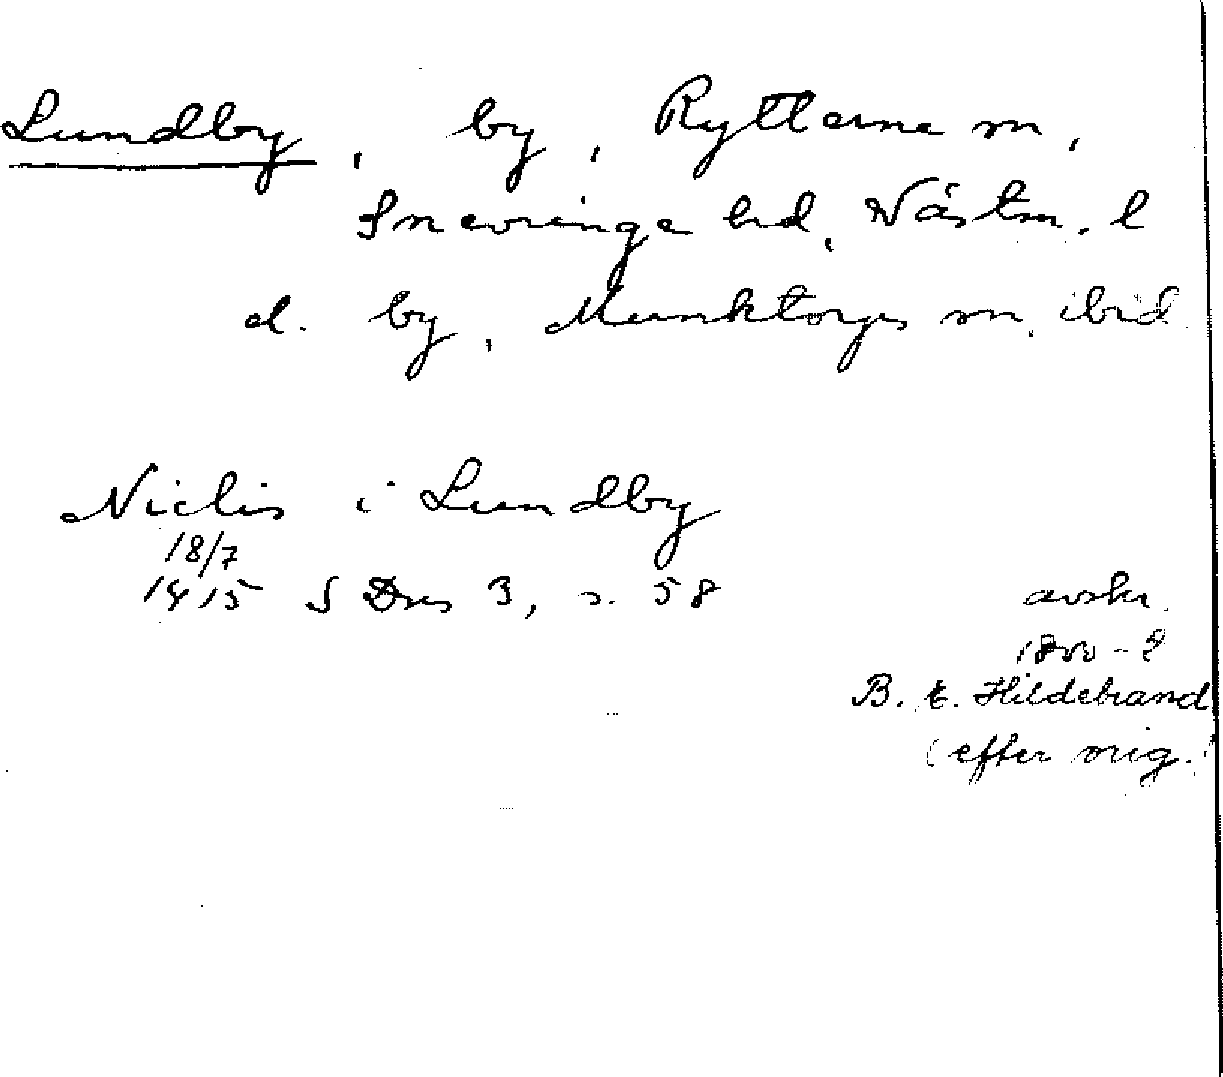 Lundby, by, Rytterne sn,
Snevringe hd, Västm. l
el. by, Munktorps sn, ibid
Niclis i Lundby
18/7
1415 S Dns 3, s. 58
avskr.
B. E. Hildebrand
(efter orig.)